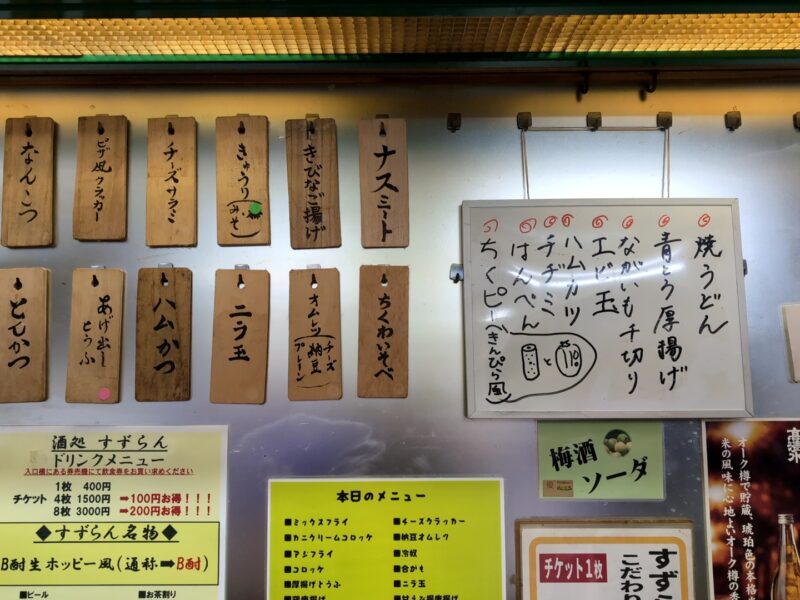 なんこつ
ピザ風クラッカー
チーズサラミ
きゅうり(みそ)
きびなご揚げ
ナスミート
とんかつ
あげ出しとうふ
ハムかつ
ニラ玉
オムレツ(チーズ 納豆 プレーン)
ちくわいそべ
焼うどん
青とう厚揚げ
ながいも千切り
エビ玉
ハムカツ
チヂミ
はんぺん
ちくピー(きんぴら風)
と
酒処 すずらん
ドリンクメニュー
入口横にある券売機にて飲食券をお買い求めください
1枚 400円
チケット 4枚 1500円 ➡100円お得!!!
8枚 3000円 ➡200円お得!!!
◆すずらん名物◆
B酎生ホッピー風(通称➡B酎)
■ビール ■お茶割り
本日のメニュー
■ミックスフライ ■チーズクラッカー
■カニクリームコロッケ ■納豆オムレツ
■アジフライ ■冷奴
■コロッケ ■合かも
■厚揚げとうふ ■ニラ玉
梅酒
ソーダ
チケット1枚
すず
こだわり
オーク樽で貯蔵、琥珀色の本格
米の風味に心地よいオーク樽の香